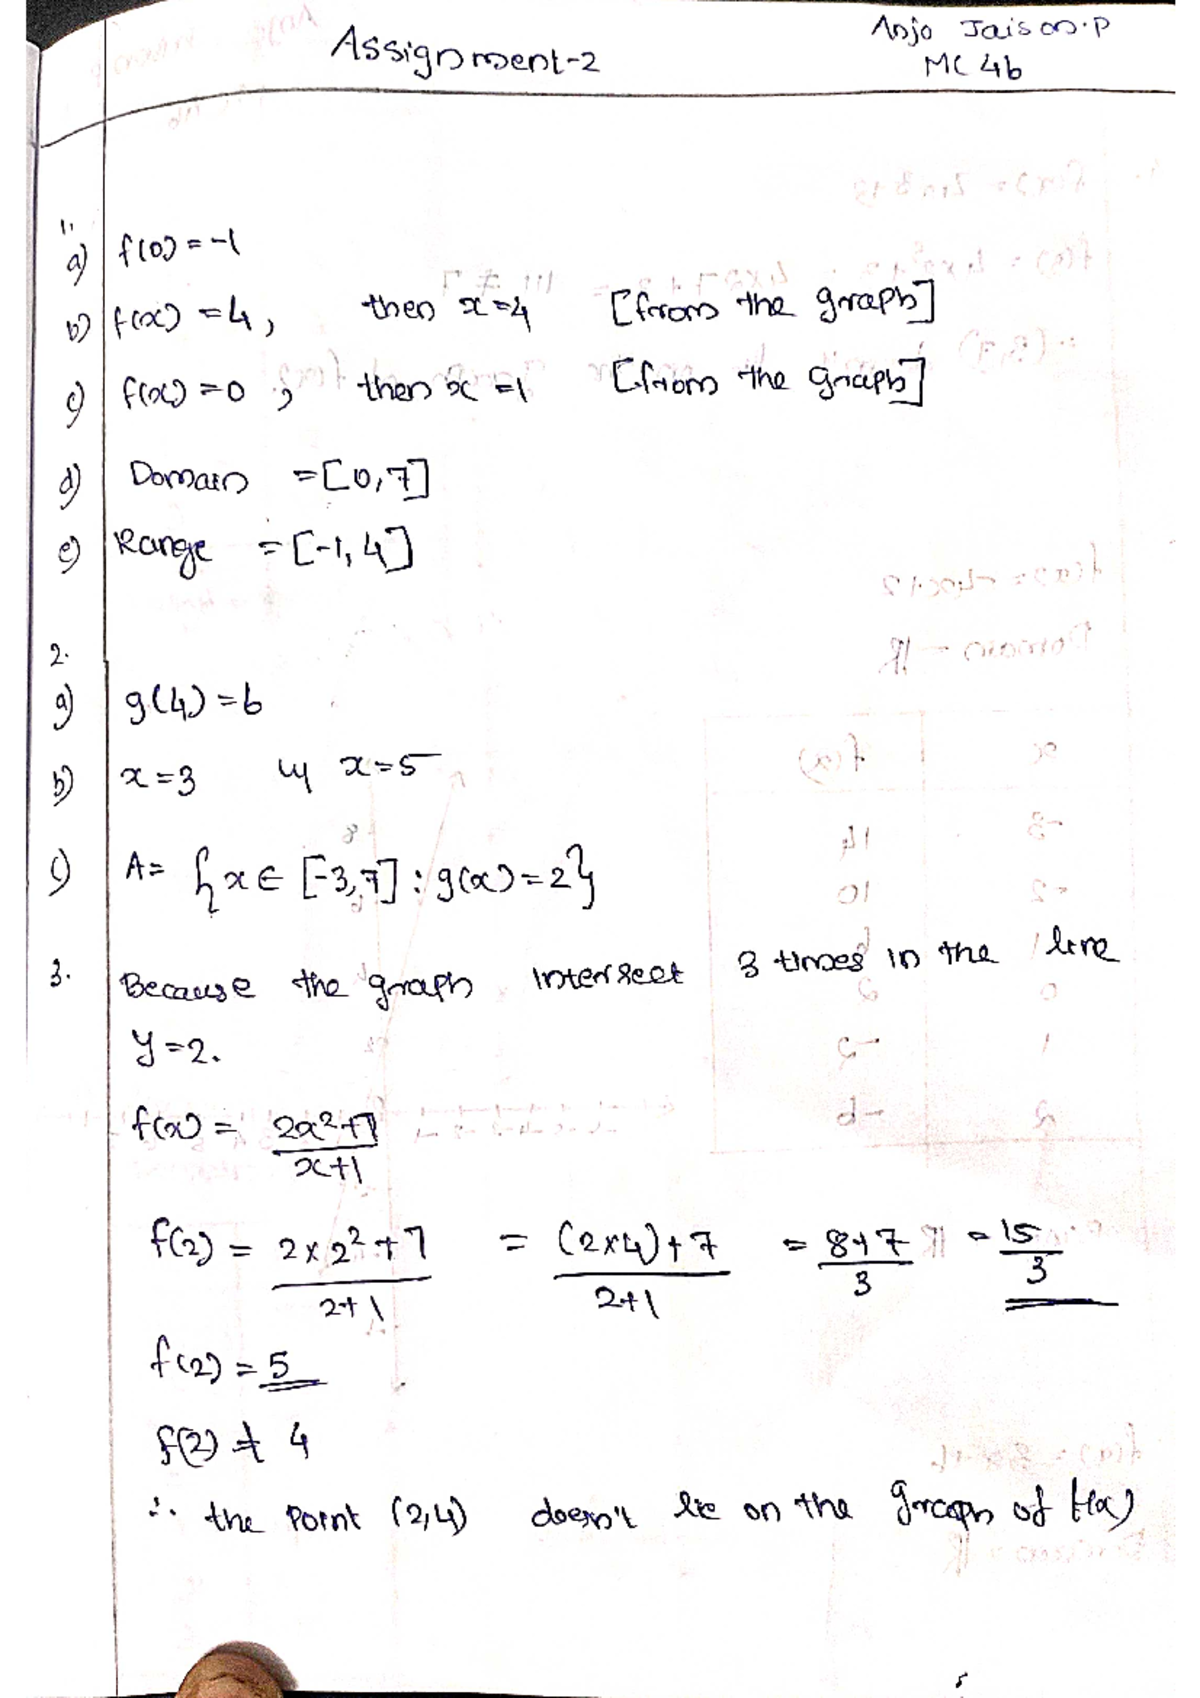 Assignment-2
Anjo Jaison.P
MC 4b
1.
a) f(0) = -1
b) f(x) = 4, then x=4 [from the graph]
c) f(x) = 0 , then x =1 [from the graph]
d) Domain = [0,7]
e) Range = [-1, 4]
2.
a) g(4) = 6
b) x = 3 x = 5
c) A = {x ∈ [-3,7] : g(x) = 2}
3. Because the graph intersect 3 times in the line
y = 2.
f(x) = (2x²+7)/(x+1)
f(2) = (2 x 2² + 7)/(2+1) = ((2x4) + 7)/(2+1) = (8+7)/3 = 15/3
f(2) = 5
f(2) ≠ 4
∴ the point (2,4) doesn't lie on the graph of f(x)